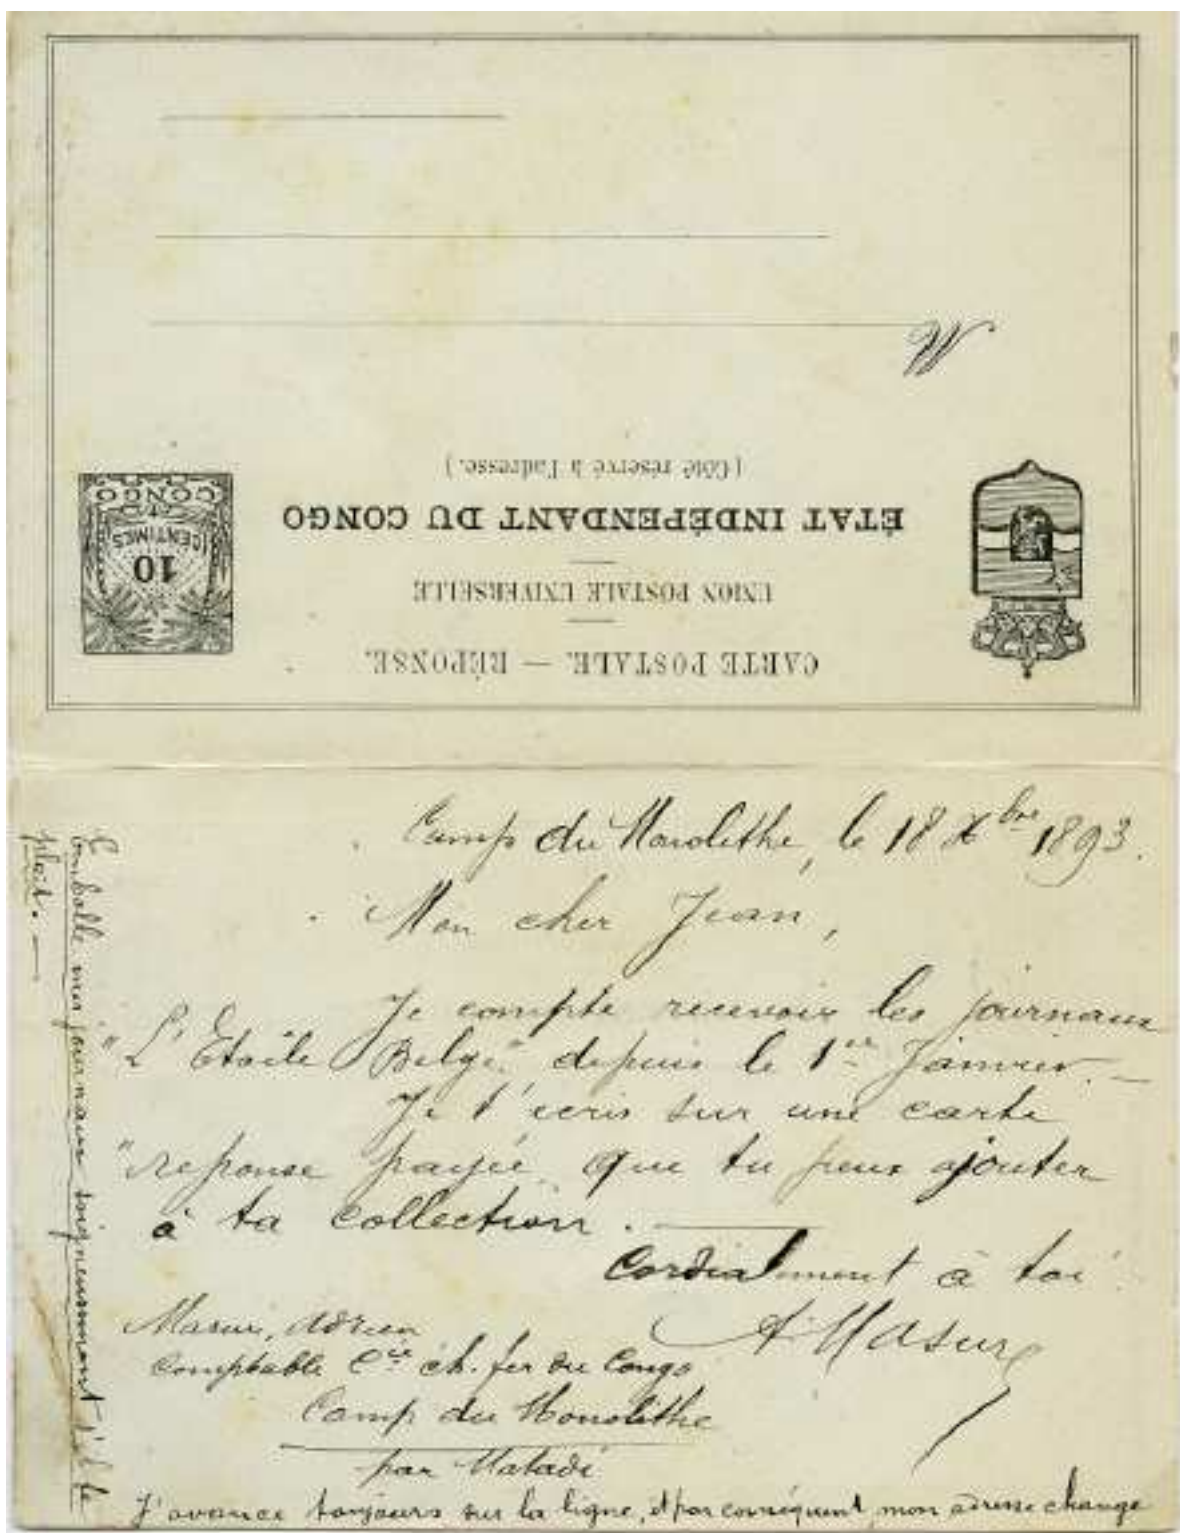 CARTE POSTALE. — RÉPONSE.
UNION POSTALE UNIVERSELLE
ÉTAT INDÉPENDANT DU CONGO
(Côté réservé à l'adresse.)
10
CENTIMES
CONGO
M
Camp du Monolithe, le 18 Xbre 1893.
Mon cher Jean,
Je compte recevoir les journaux
"L'Etoile Belge" depuis le 1er Janvier. —
Je t'ecris sur une carte
"reponse payée que tu peux ajouter
à ta collection. —
Cordialement à toi
A Masure
Masure, Adrien
Comptable Cie ch. fer du Congo
Camp du Monolithe
par Matadi
J'avance toujours sur la ligne, et par conséquent mon adresse change
Emballe mes journaux soigneusement s'il te
plait. —